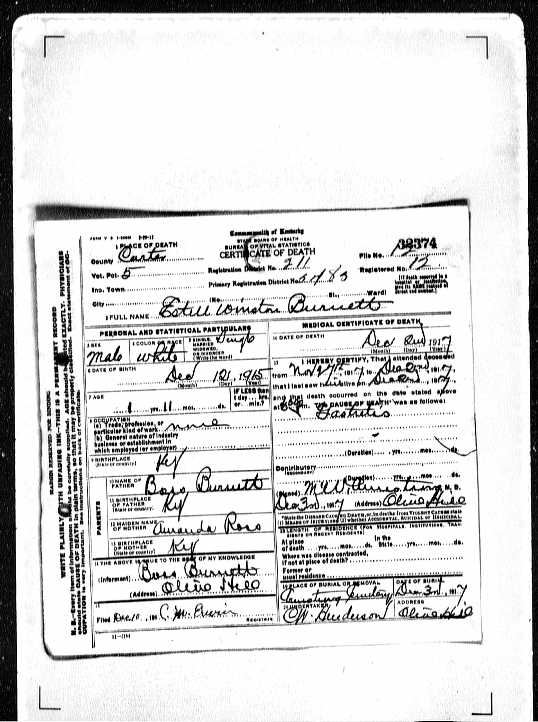 Commonwealth of Kentucky
STATE BOARD OF HEALTH
BUREAU OF VITAL STATISTICS
CERTIFICATE OF DEATH
1 PLACE OF DEATH
County Carter
File No. 32374
Vot. Pct. 5
Registration District No. 211
Registered No. 12
Inc. Town
Primary Registration District No.
City (No. St., Ward)
[If death occurred in a hospital or institution, give its NAME instead of street and number.]
2 FULL NAME Estill Winston Burnett
PERSONAL AND STATISTICAL PARTICULARS
3 SEX Male
4 COLOR OR RACE white
5 SINGLE, MARRIED, WIDOWED, OR DIVORCED (Write the word) Single
6 DATE OF BIRTH
Dec 12, 1915
(Month) (Day) (Year)
7 AGE
1 yrs. 11 mos. ds.
IF LESS than 1 day... hrs. or min.?
8 OCCUPATION
(a) Trade, profession, or particular kind of work none
(b) General nature of industry business or establishment in which employed (or employer)
9 BIRTHPLACE (State or country) Ky
PARENTS
10 NAME OF FATHER Boss Burnett
11 BIRTHPLACE OF FATHER (State or country) Ky
12 MAIDEN NAME OF MOTHER Amanda Ross
13 BIRTHPLACE OF MOTHER (State or country) Ky
14 THE ABOVE IS TRUE TO THE BEST OF MY KNOWLEDGE
(Informant) Boss Burnett
(Address) Olive Hill
15
Filed Dec 10, 191
REGISTRAR
MEDICAL CERTIFICATE OF DEATH
16 DATE OF DEATH
Dec 2nd 1917
(Month) (Day) (Year)
17 I HEREBY CERTIFY, That I attended deceased
from Nov 27th, 1917, to Dec 2nd, 1917,
that I last saw him alive on Dec 2nd, 1917,
and that death occurred on the date stated above
at m. The CAUSE OF DEATH was as follows:
(Duration) yrs. mos. ds.
Contributory (SECONDARY)
(Duration) yrs. mos. ds.
(Signed) Armstrong M. D.
Dec 3rd, 1917 (Address) Olive Hill
18 LENGTH OF RESIDENCE (FOR HOSPITALS, INSTITUTIONS, TRANSIENTS OR RECENT RESIDENTS)
At place of death yrs. mos. ds. In the State yrs. mos. ds.
Where was disease contracted, if not at place of death?
Former or usual residence
19 PLACE OF BURIAL OR REMOVAL Armstrong Cemetery
DATE OF BURIAL Dec 3rd, 1917
20 UNDERTAKER Henderson
ADDRESS Olive Hill
MARGIN RESERVED FOR BINDING
WRITE PLAINLY WITH UNFADING INK—THIS IS A PERMANENT RECORD